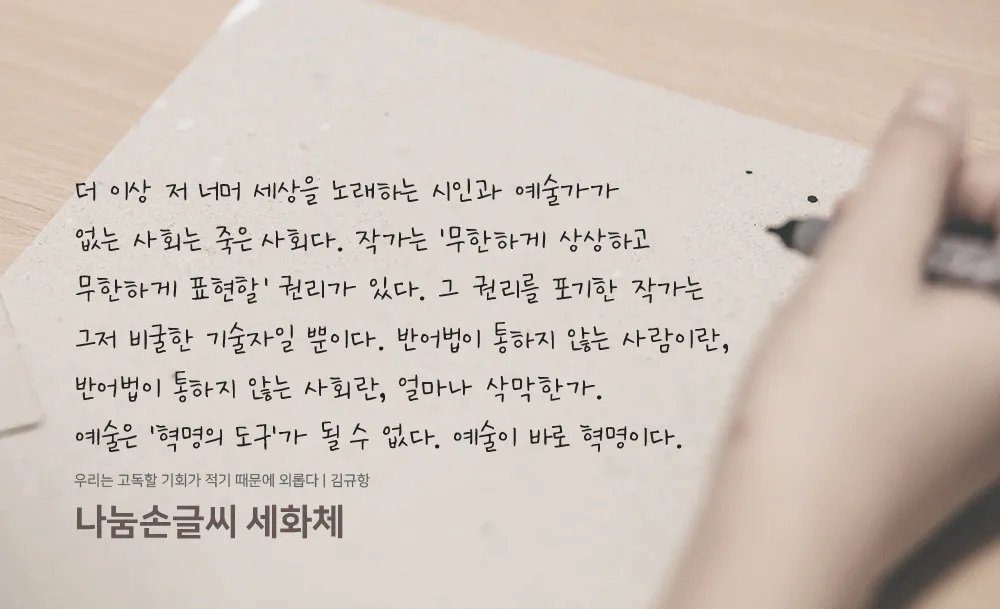 더 이상 저 너머 세상을 노래하는 시인과 예술가가
없는 사회는 죽은 사회다. 작가는 '무한하게 상상하고
무한하게 표현할' 권리가 있다. 그 권리를 포기한 작가는
그저 비굴한 기술자일 뿐이다. 반어법이 통하지 않는 사람이란,
반어법이 통하지 않는 사회란, 얼마나 삭막한가.
예술은 '혁명의 도구'가 될 수 없다. 예술이 바로 혁명이다.
우리는 고독할 기회가 적기 때문에 외롭다 | 김규항
나눔손글씨 세화체